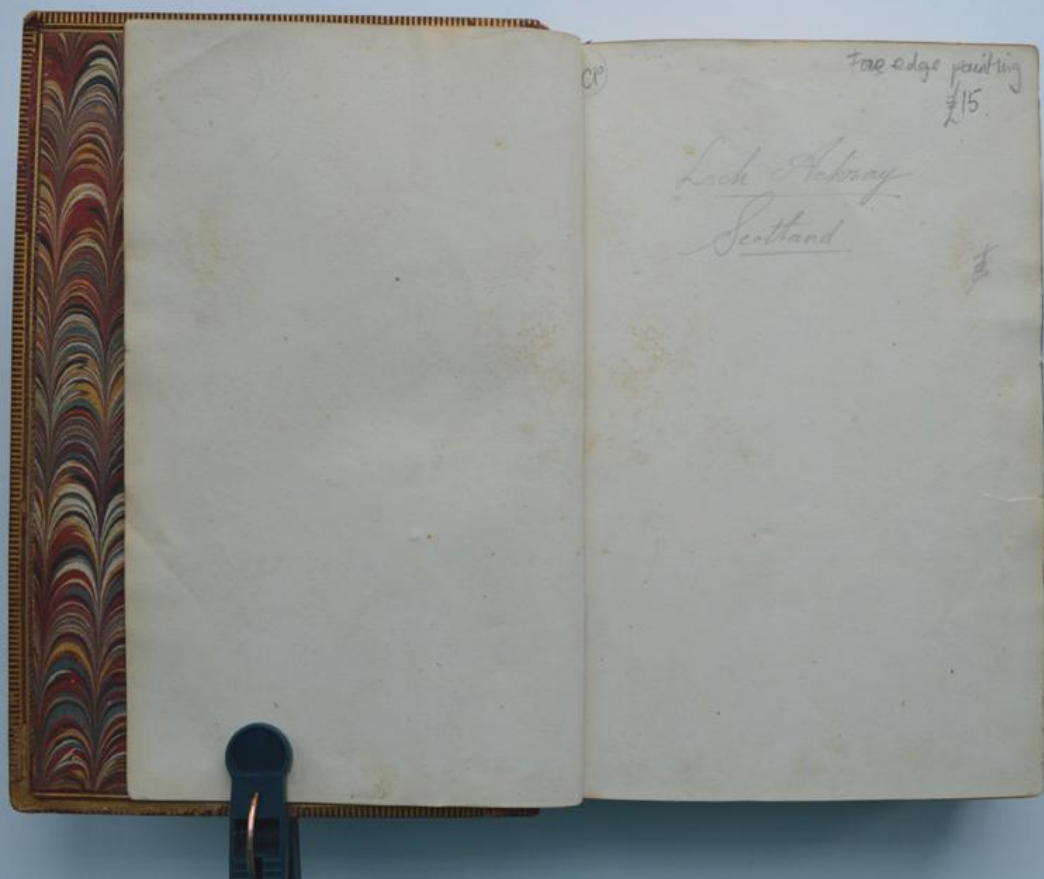 CP
Fore edge painting
£15.
Loch Achray
Scotland